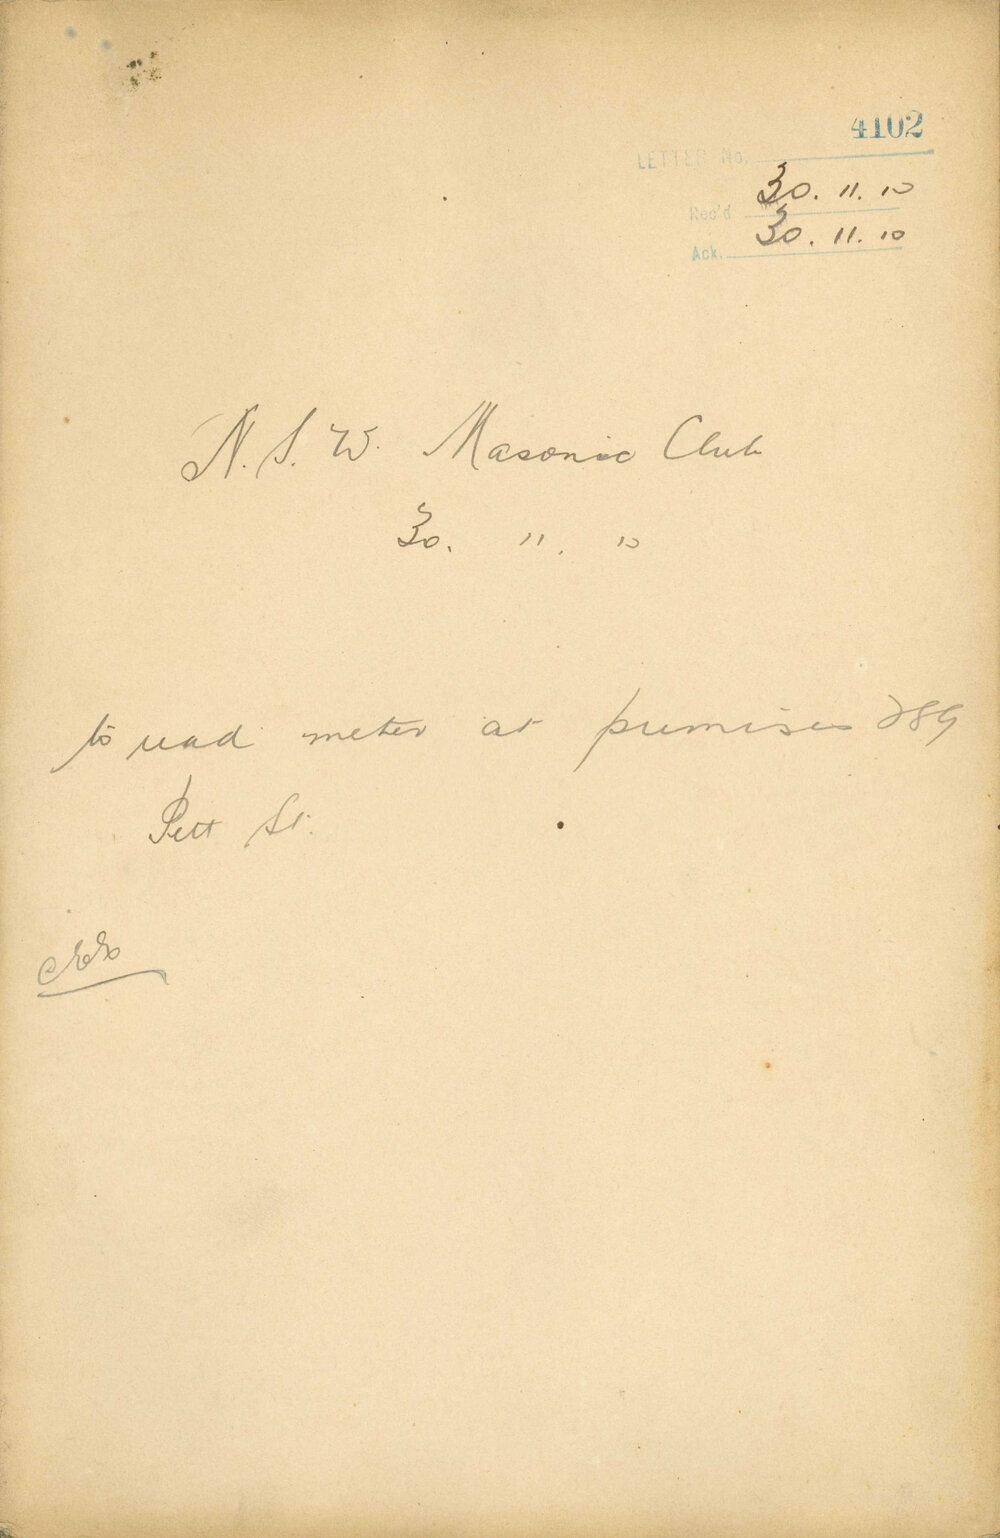 4102
LETTER No.
Rec'd 30. 11. 10
Ack. 30. 11. 10
N. S. W. Masonic Club
30. 11. 10
to read meter at premises 289
Pitt St.